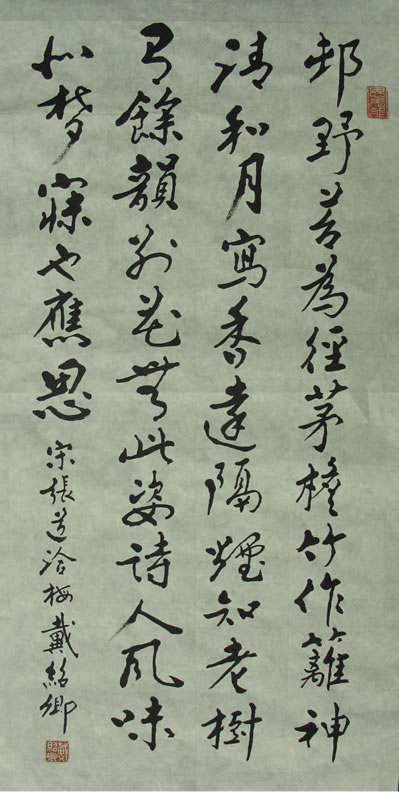 邨野苔為徑茅檐竹作籬神
清和月寫香遠隔煙知老樹
有餘韻別花無此姿詩人风味
似梦寐也應思
宋張道洽梅戴紹卿